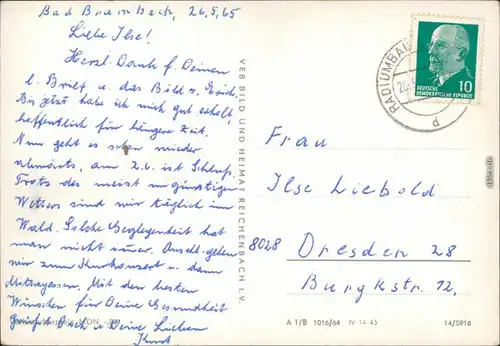 Bad Brambach, 26.5.65
Liebe Ilse!
Herzl. Dank f. Deinen
l. Brief u. das Bild v. Erich.
Bis jetzt habe ich mich gut erholt,
hoffentlich für längere Zeit.
Nun geht es schon wieder
, am 2.6. ist Schluß.
Trotz des meist ungünstigen
Wetters sind wir täglich im
Wald. Solche Gelegenheit hat
man nicht immer. Anschl. gehen
wir zum Kurkonzert u. dann
Mittagessen. Mit den besten
Wünschen für Deine Gesundheit
grüßt Dich u. Deine Lieben
Kurt
VEB BILD UND HEIMAT REICHENBACH I. V.
RADIUMBAD
d
DEUTSCHE
DEMOKRATISCHE REPUBLIK
10
Frau
Ilse Liebold
8028 Dresden 28
Burgkstr. 12.
A 1/B 1016/64 IV-14-45 14/5916